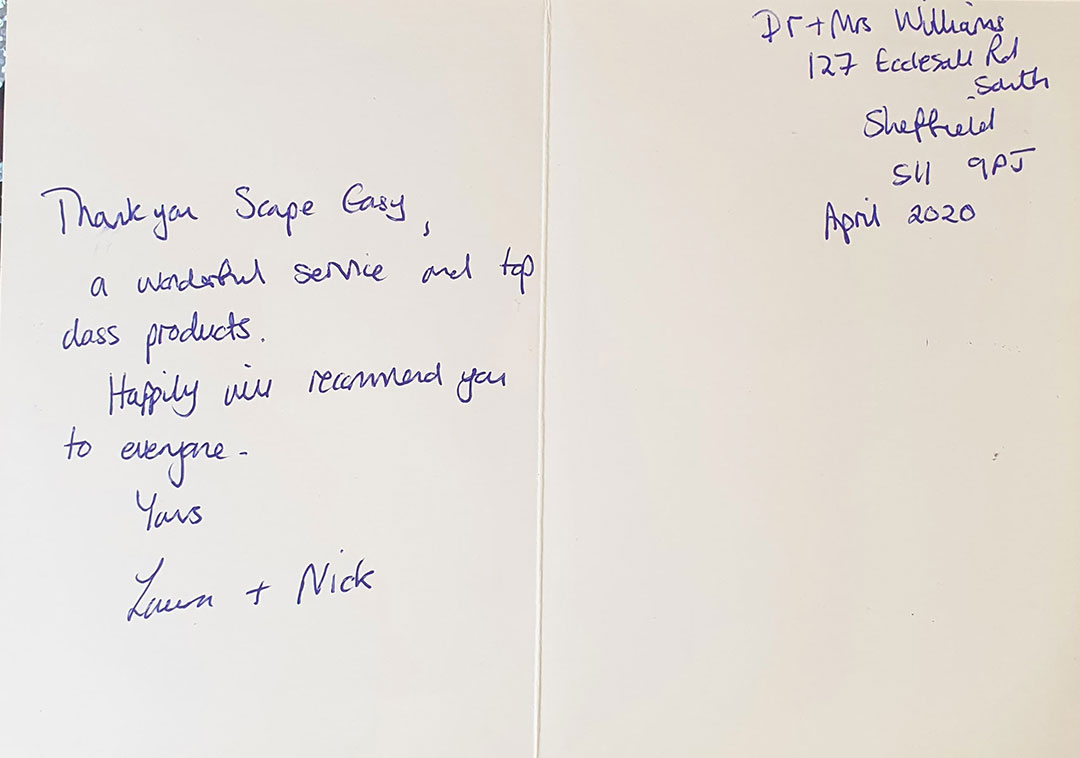 Thank you Scape Easy,
a wonderful service and top
class products.
Happily will recommend you
to everyone -
Yours
Laura + Nick
Dr + Mrs Williams
127 Ecclesall Rd
South
Sheffield
S11 9PJ
April 2020